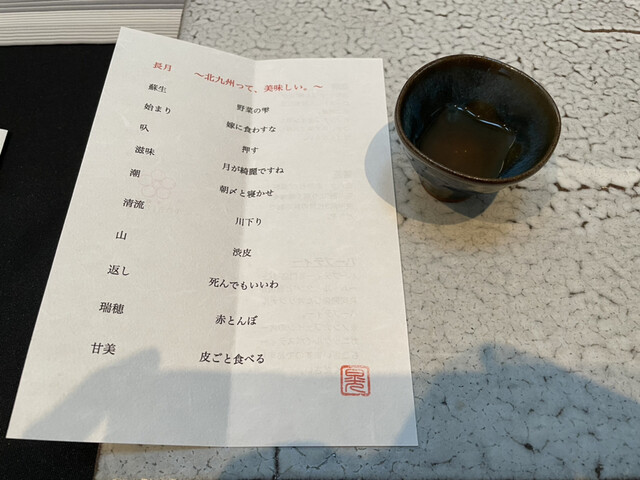 長月 ～北九州って、美味しい。～
蘇生 野菜の雫
始まり 嫁に食わすな
叺 押す
滋味 月が綺麗ですね
潮 朝〆と寝かせ
清流 川下り
山 渋皮
返し 死んでもいいわ
瑞穂 赤とんぼ
甘美 皮ごと食べる